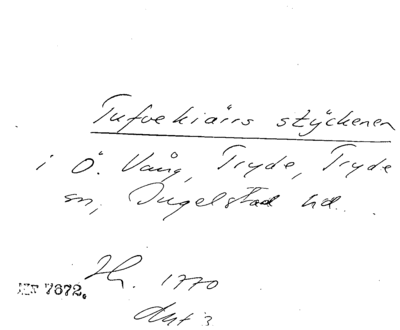 Tufvekiärrs stÿckenen
i Ö. Vång, Tryde, Tryde
sn, Ingelstad hd.
1770
7672.